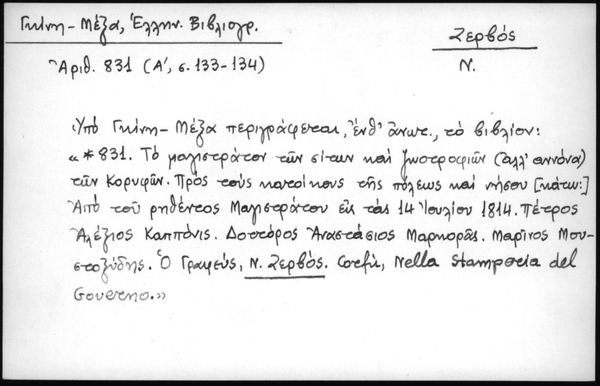 Γκίνη-Μέξα, Ἑλλην. Βιβλιογρ.
Ζερβός
Ν.
Ἀριθ. 831 (Α', σ. 133-134)
Ὑπό Γκίνη-Μέξα περιγράφεται, ἔνθ' ἄνωτ., τό βιβλίον:
«*831. Τό μαγιστράτον τῶν σίτων καί ζωοτροφιῶν (ἀλλ' αννόνα)
τῶν Κορυφῶν. Πρός τούς κατοίκους τῆς πόλεως καί νήσου [κάτω:]
Ἀπό τοῦ ρηθέντος Μαγιστράτου εἰς τάς 14 Ἰουλίου 1814. Πέτρος
Ἀλέξιος Καππάνις. Δοτόρος Ἀναστάσιος Μαρκορᾶς. Μαρῖνος Μου-
στοξύδης. Ὁ Γραφεύς, Ν. Ζερβός. Corfù, Nella Stamperia del
Governo.»